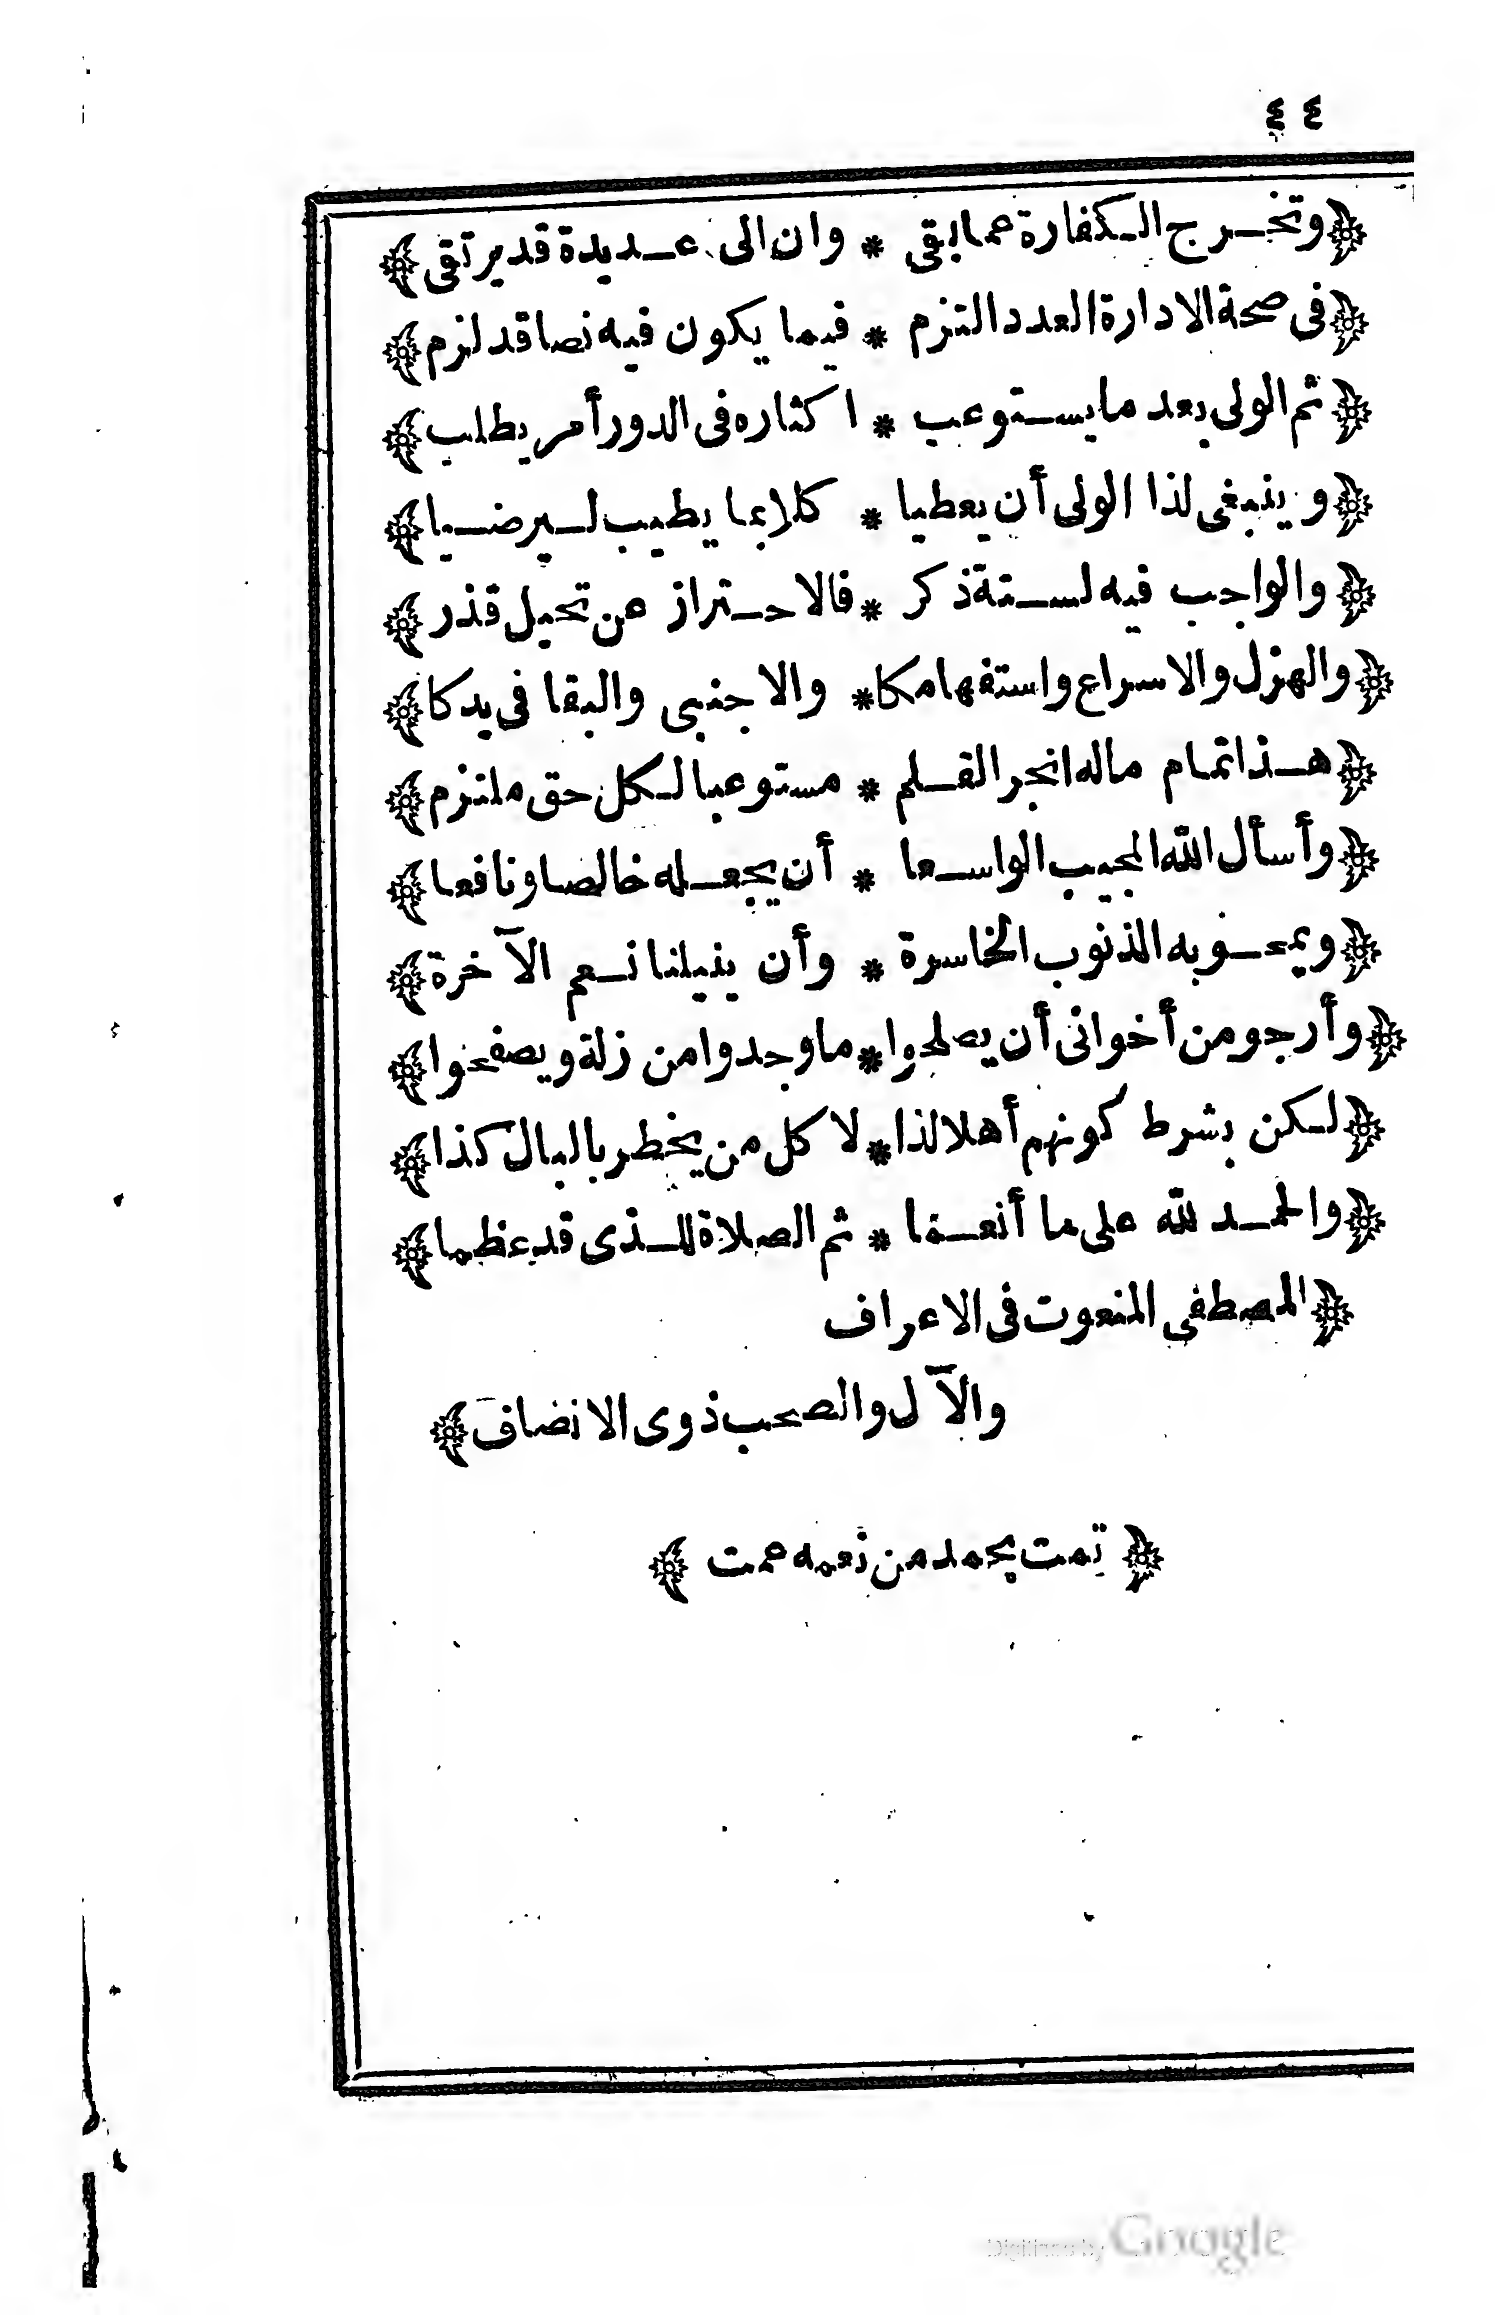 ٤٤
﴿وتخرج الكفارة عما بقى * وان الى عديدة قد يرتقى﴾
﴿فى صحة الادارة العدد التزم * فيما يكون فيه نصا قد لزم﴾
﴿ثم الولى بعد ما يستوعب * اكثاره فى الدور أمر يطلب﴾
﴿وينبغى لذا الولى أن يعطيا * كلا بما يطيب ليرضيا﴾
﴿والواجب فيه لستة ذكر * فالاحتراز عن تحيل قذر﴾
﴿والهزل والاسراع واستفهامكا * والاجنبى والبقا فى يدكا﴾
﴿هذا تمام ماله انجر القلم * مستوعبا لكل حق ملتزم﴾
﴿وأسأل الله المجيب الواسعا * أن يجعله خالصا ونافعا﴾
﴿ويمحو به الذنوب الخاسرة * وأن ينيلنا نعم الآخرة﴾
﴿وأرجو من أخوانى أن يصلحوا * ما وجدوا من زلة ويصفحوا﴾
﴿لكن بشرط كونهم أهلا لذا * لا كل من يخطر بالبال كذا﴾
﴿والحمد لله على ما أنعما * ثم الصلاة للذى قد عظما﴾
﴿المصطفى المنعوت فى الاعراف
والآل والصحب ذوى الانضاف﴾
﴿تمت بحمد من نعمه عمت﴾
Digitized by Google